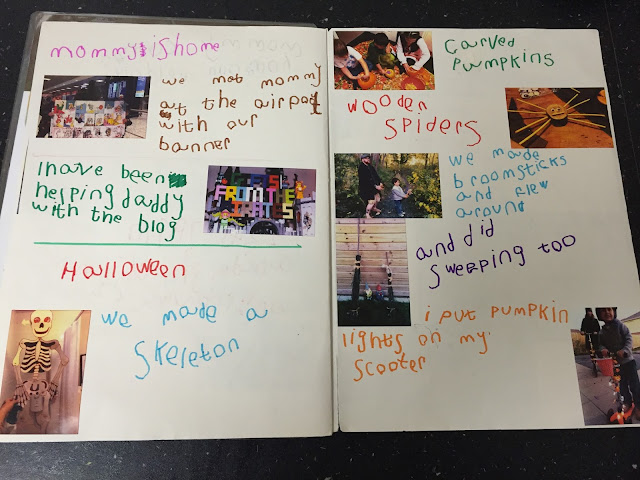 mommy is home
we met mommy
at the airport
with our
banner
I have been
helping daddy
with the blog
FROM THE
PIRATES
Halloween
we made a
skeleton
carved
pumpkins
wooden
spiders
we made
broomsticks
and flew
around
and did
sweeping too
i put pumpkin
lights on my
scooter